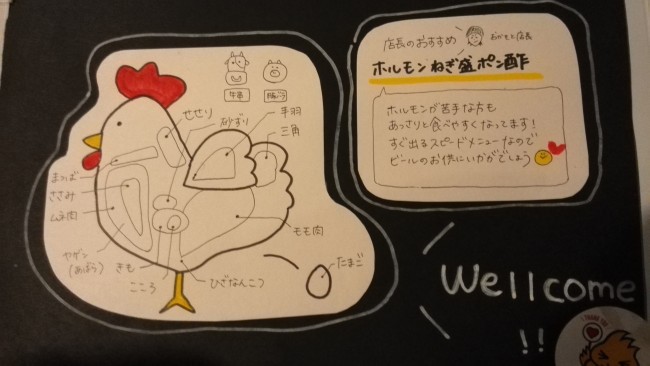 店長のおすすめ
おかもと店長
ホルモンねぎ盛ポン酢
ホルモンが苦手な方も
あっさりと食べやすくなってます!
すぐ出るスピードメニューなので
ビールのお供にいかがでしょう
せせり
砂ずり
手羽
三角
まつば
ささみ
ムネ肉
ヤゲン
きも
こころ
ひざなんこつ
モモ肉
たまご
Wellcome
!!